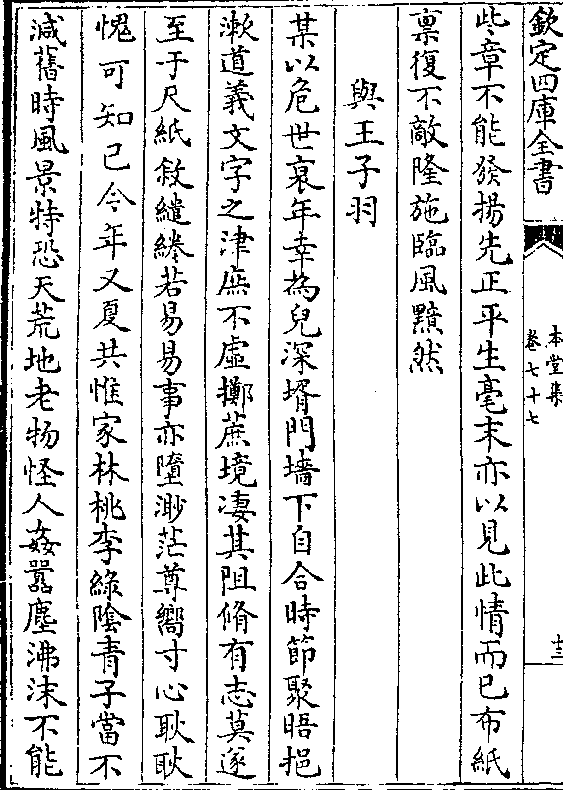 欽定四庫全書
本堂集
卷七十七
十三
此章不能發揚先正平生毫末亦以見此情而已布紙
禀復不敵隆施臨風黯然
與王子羽
某以危世衰年幸為兒深壻門墻下自合時節聚晤挹
漱道義文字之津庶不虛擲蔗境凄其阻脩有志莫遂
至于尺紙敘繾綣若易易事亦墮渺茫尊嚮寸心耿耿
愧可知已今年又夏共惟家林桃李綠陰青子當不
減舊時風景特恐天荒地老物怪人姦囂塵沸沫不能